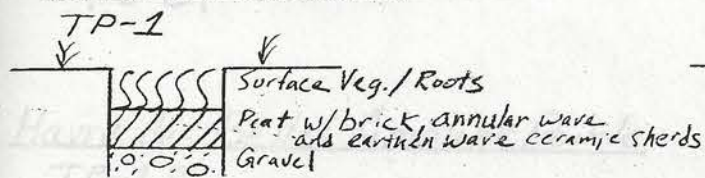 TP-1
Surface Veg./Roots
Peat w/brick, annular ware
and earthen ware ceramic sherds
Gravel